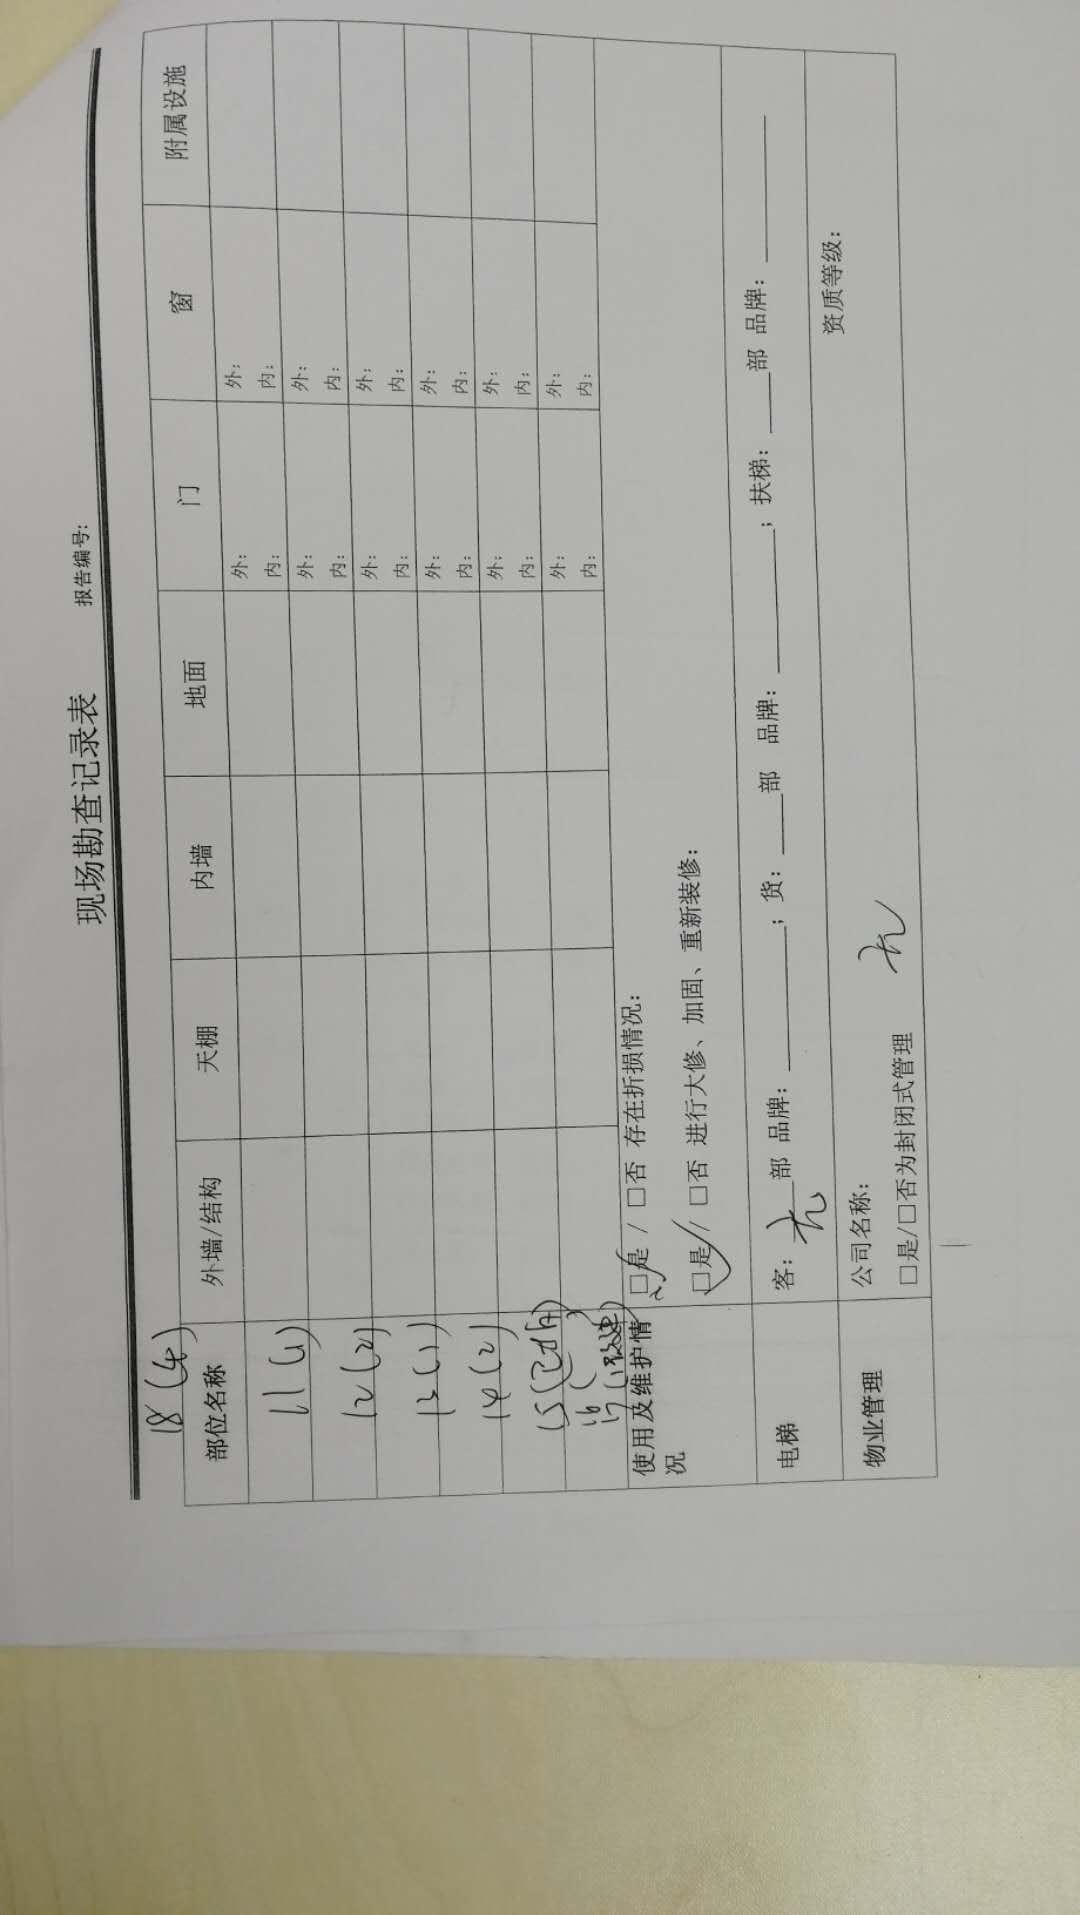 现场勘查记录表
报告编号:
18(4)
部位名称 外墙/结构 天棚 内墙 地面 门 窗 附属设施
11(1) 外: 外:
内: 内:
12(2) 外: 外:
内: 内:
13(1) 外: 外:
内: 内:
14(2) 外: 外:
内: 内:
15( 外: 外:
内: 内:
16( 外: 外:
17( 内: 内:
使用及维护情况 □是 / □否 存在折损情况:
□是 / □否 进行大修、加固、重新装修:
电梯 客: 无 部 品牌: ______; 货: ___部 品牌: ______; 扶梯: ___部 品牌: ______
物业管理 公司名称: 资质等级:
□是/□否为封闭式管理 无